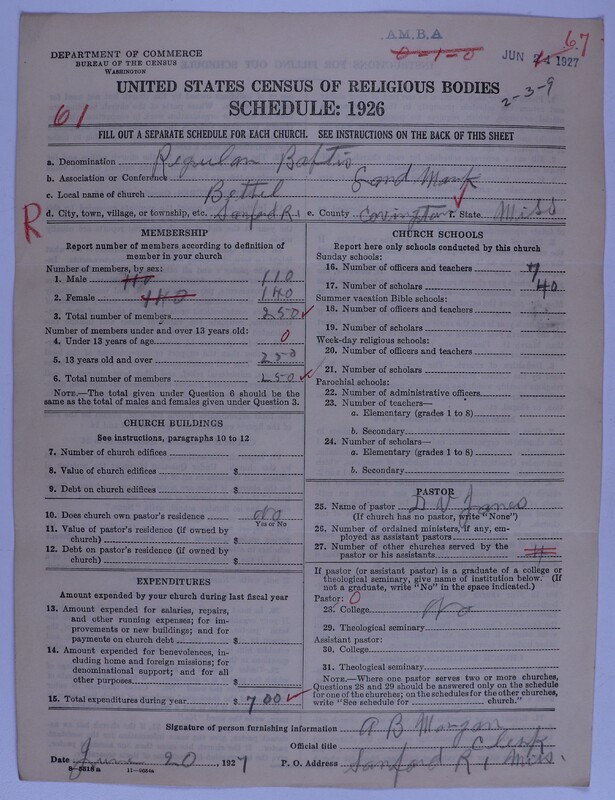 A.M.B.A
0-1-0
JUN 24 1927
67
DEPARTMENT OF COMMERCE
BUREAU OF THE CENSUS
WASHINGTON
UNITED STATES CENSUS OF RELIGIOUS BODIES
2-3-9
61
SCHEDULE: 1926
FILL OUT A SEPARATE SCHEDULE FOR EACH CHURCH. SEE INSTRUCTIONS ON THE BACK OF THIS SHEET
a. Denomination Regular Baptis
b. Association or Conference Land Mark
c. Local name of church Bethel
R d. City, town, village, or township, etc. Sanford R. 1 e. County Covington f. State Miss
MEMBERSHIP
Report number of members according to definition of
member in your church
Number of members, by sex:
1. Male 110 110
2. Female 140 140
3. Total number of members 250
Number of members under and over 13 years old:
4. Under 13 years of age 0
5. 13 years old and over 250
6. Total number of members 250
NOTE.—The total given under Question 6 should be
same as the total of males and females given under Question 3.
CHURCH BUILDINGS
See instructions, paragraphs 10 to 12
7. Number of church edifices
8. Value of church edifices $
9. Debt on church edifices $
10. Does church own pastor's residence No
Yes or No
11. Value of pastor's residence (if owned by
church) $
12. Debt on pastor's residence (if owned by
church) $
EXPENDITURES
Amount expended by your church during last fiscal year
13. Amount expended for salaries, repairs,
and other running expenses; for im-
provements or new buildings; and for
payments on church debt $
14. Amount expended for benevolences,
including home and foreign missions; for
denominational support; and for all
other purposes $
15. Total expenditures during year $ 700
CHURCH SCHOOLS
Report here only schools conducted by this church
Sunday schools:
16. Number of officers and teachers 7
17. Number of scholars 40
Summer vacation Bible schools:
18. Number of officers and teachers
19. Number of scholars
Week-day religious schools:
20. Number of officers and teachers
21. Number of scholars
Parochial schools:
22. Number of administrative officers
23. Number of teachers—
a. Elementary (grades 1 to 8)
b. Secondary
24. Number of scholars—
a. Elementary (grades 1 to 8)
b. Secondary
PASTOR
25. Name of pastor D V
(If church has no pastor, write "None")
26. Number of ordained ministers, if any, em-
ployed as assistant pastors
27. Number of other churches served by the
pastor or his assistants
If pastor (or assistant pastor) is a graduate of a college or
theological seminary, give name of institution below. (If
not a graduate, write "No" in the space indicated.)
Pastor: 0
28. College No
29. Theological seminary
Assistant pastor:
30. College
31. Theological seminary
NOTE.—Where one pastor serves two or more churches,
Questions 28 and 29 should be answered only on the schedule
for one of the churches; on the schedules for the other churches,
write "See schedule for church."
Signature of person furnishing information A B Morgan
Official title Clerk
Date June 20, 1927 P. O. Address Sanford R 1 Miss.
8—5518 a 11—9554a